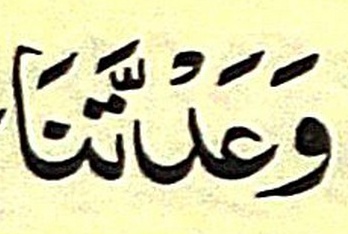 وَعَدْتَّنَا